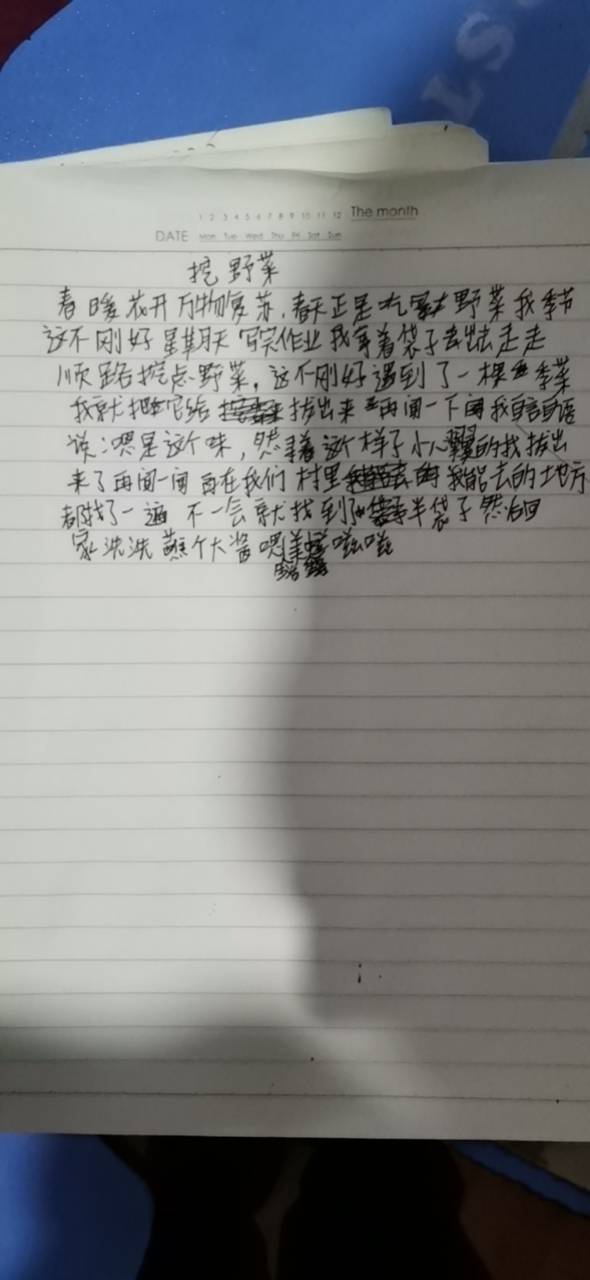 1 2 3 4 5 6 7 8 9 10 11 12 The month
DATE Mon Tue Wed Thu Fri Sat Sun
挖野菜
春暖花开万物复苏,春天正是吃野菜我季节
这不刚好星期天写完作业我拿着袋子去出去走走
顺路挖点野菜,这不刚好遇到了一棵荠菜
我就把它给拔出来再闻一下闻我自言自语
说:嗯是这个味,然寻着这个样子小心翼的找拔出
来了再闻一闻再在我们村里我能去的地方
都找了一遍不一会就找到了半袋子然后回
家洗洗蘸个大酱嗯滋滋